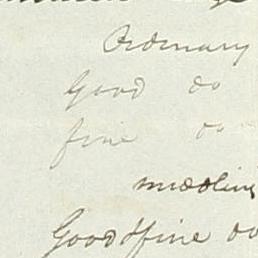 Ordinary
Good do
fine do
middling
Good & fine do